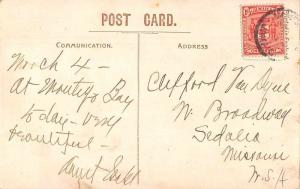 POST CARD.
COMMUNICATION.
ADDRESS
March 4 –
At Montego Bay
to day – very
beautiful –
Aunt
Clifford Van Dyne
W. Broadway
Sedalia
Missouri
U.S.A